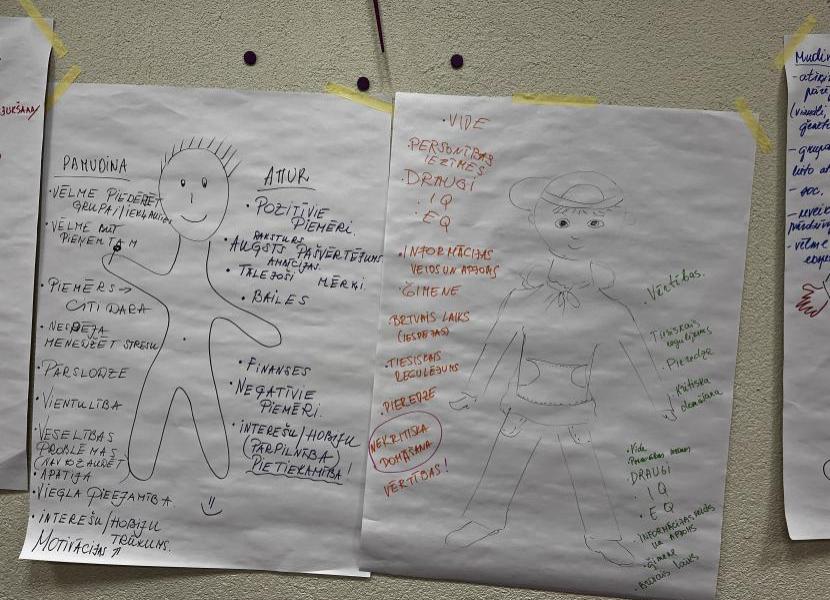 PAMUDINA
• VĒLME PIEDERĒT
GRUPA/IEKĻAUTIES
• VĒLME BŪT
PIEŅEMTAM
• PIEMĒRS →
CITI DARA
• NESPĒJA
MENEDŽĒT STRESU
• PĀRSLODZE
• VIENTULĪBA
VESELĪBAS
PROBLĒMAS
(NAV KO ZAUDĒT)
• APĀTIJA
• VIEGLA PIEEJAMĪBA.
• INTEREŠU/HOBIJU
TRŪKUMS.
MOTIVĀCIJAS ↑
ATTUR
• POZITĪVIE
PIEMĒRI.
RAKSTURS
• AUGSTS PAŠVĒRTĒJUMS
AMBĪCIJAS
• TĀLEJOŠI MĒRĶI.
• BAILES
• FINANSES
• NEGATĪVIE
PIEMĒRI.
• INTEREŠU/HOBIJU
(PĀRPILNĪBA)
PIETIEKAMĪBA!
• VIDE
• PERSONĪBAS
IEZĪMES
• DRAUGI
• IQ
• EQ
• INFORMĀCIJAS
VEIDS UN APJOMS
• ĢIMENE
BRĪVAIS LAIKS
(IESPĒJAS)
• TIESISKAIS
REGULĒJUMS
• PIEREDZE
NEKRITISKA
DOMĀŠANA
VĒRTĪBAS!
• Vērtības.
Tiesiskais
regulējums
• Pieredze
• Kritiska
domāšana
• Vide
DRAUGI
• IQ
• EQ
INFORMĀCIJAS VEIDS
UN APJOMS
• Ģimene
• Brīvais laiks
Mudin
- grupa
- soc.
- vēlme